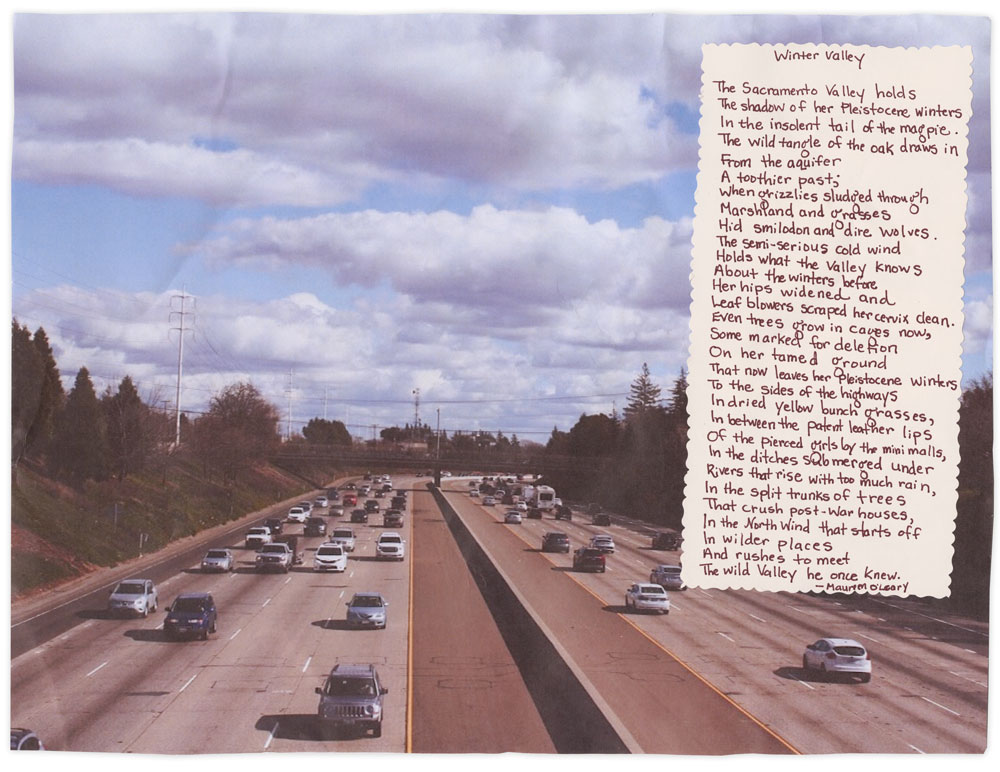 Winter Valley
The Sacramento Valley holds
The shadow of her Pleistocene winters
In the insolent tail of the magpie.
The wild tangle of the oak draws in
From the aquifer
A toothier past;
When grizzlies sludged through
Marshland and grasses
Hid smilodon and dire wolves.
The semi-serious cold wind
Holds what the Valley knows
About the winters before
Her hips widened and
Leaf blowers scraped her cervix clean.
Even trees grow in cages now,
Some marked for deletion
On her tamed ground
That now leaves her Pleistocene winters
To the sides of the highways
In dried yellow bunch grasses,
In between the patent leather lips
Of the pierced girls by the mini malls,
In the ditches submerged under
Rivers that rise with too much rain,
In the split trunks of trees
That crush post-War houses,
In the North Wind that starts off
In wilder places
And rushes to meet
The wild Valley he once knew.
—Maureen O'Leary